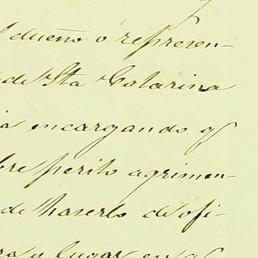 dueño ó represen-
de Sta Catarina
a encargando q
bre perito agrimen-
de haserlo de ofi-
ra y lugar en q